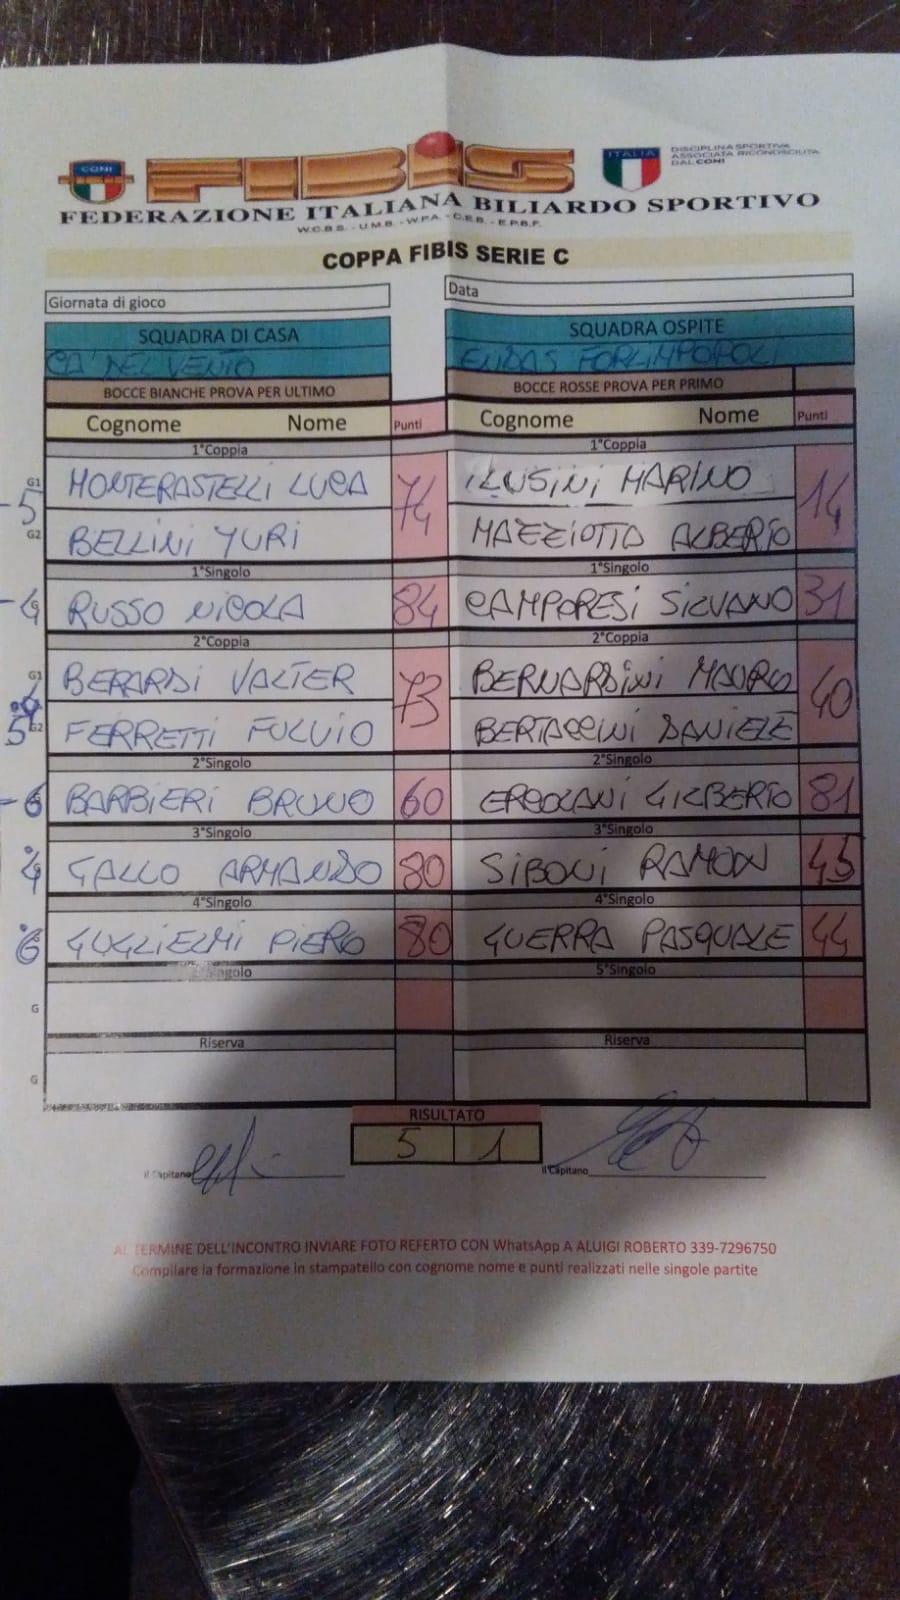 CONI
FIBIS
ITALIA
DISCIPLINA SPORTIVA
ASSOCIATA RICONOSCIUTA
DAL CONI
FEDERAZIONE ITALIANA BILIARDO SPORTIVO
W.C.B.S. - U.M.B. - W.P.A. - C.E.B. - E.P.B.F.
COPPA FIBIS SERIE C
Giornata di gioco Data
SQUADRA DI CASA SQUADRA OSPITE
CA' DEL VENTO ENDAS FORLIMPOPOLI
BOCCE BIANCHE PROVA PER ULTIMO BOCCE ROSSE PROVA PER PRIMO
Cognome Nome Punti Cognome Nome Punti
1°Coppia 1°Coppia
G1 MONTERASTELLI LUCA 74 MARINO 14
-5
G2 BELLINI YURI MAZZIOTTO ALBERTO
1°Singolo 1°Singolo
-4 G RUSSO NICOLA 84 CAMPORESI SILVANO 31
2°Coppia 2°Coppia
G1 BERARDI VALTER 73 BERNARDINI MAURO 40
5 G2 FERRETTI FULVIO BERTACCINI DANIELE
2°Singolo 2°Singolo
-6 BARBIERI BRUNO 60 ERCOLANI GILBERTO 81
3°Singolo 3°Singolo
4 GALLO ARMANDO 80 SIBONI RAMON 45
4°Singolo 4°Singolo
6 GUGLIELMI PIERO 80 GUERRA PASQUALE 44
5°Singolo 5°Singolo
G
Riserva Riserva
G
RISULTATO
5 1
Il Capitano Il Capitano
AL TERMINE DELL'INCONTRO INVIARE FOTO REFERTO CON WhatsApp A ALUIGI ROBERTO 339-7296750
Compilare la formazione in stampatello con cognome nome e punti realizzati nelle singole partite